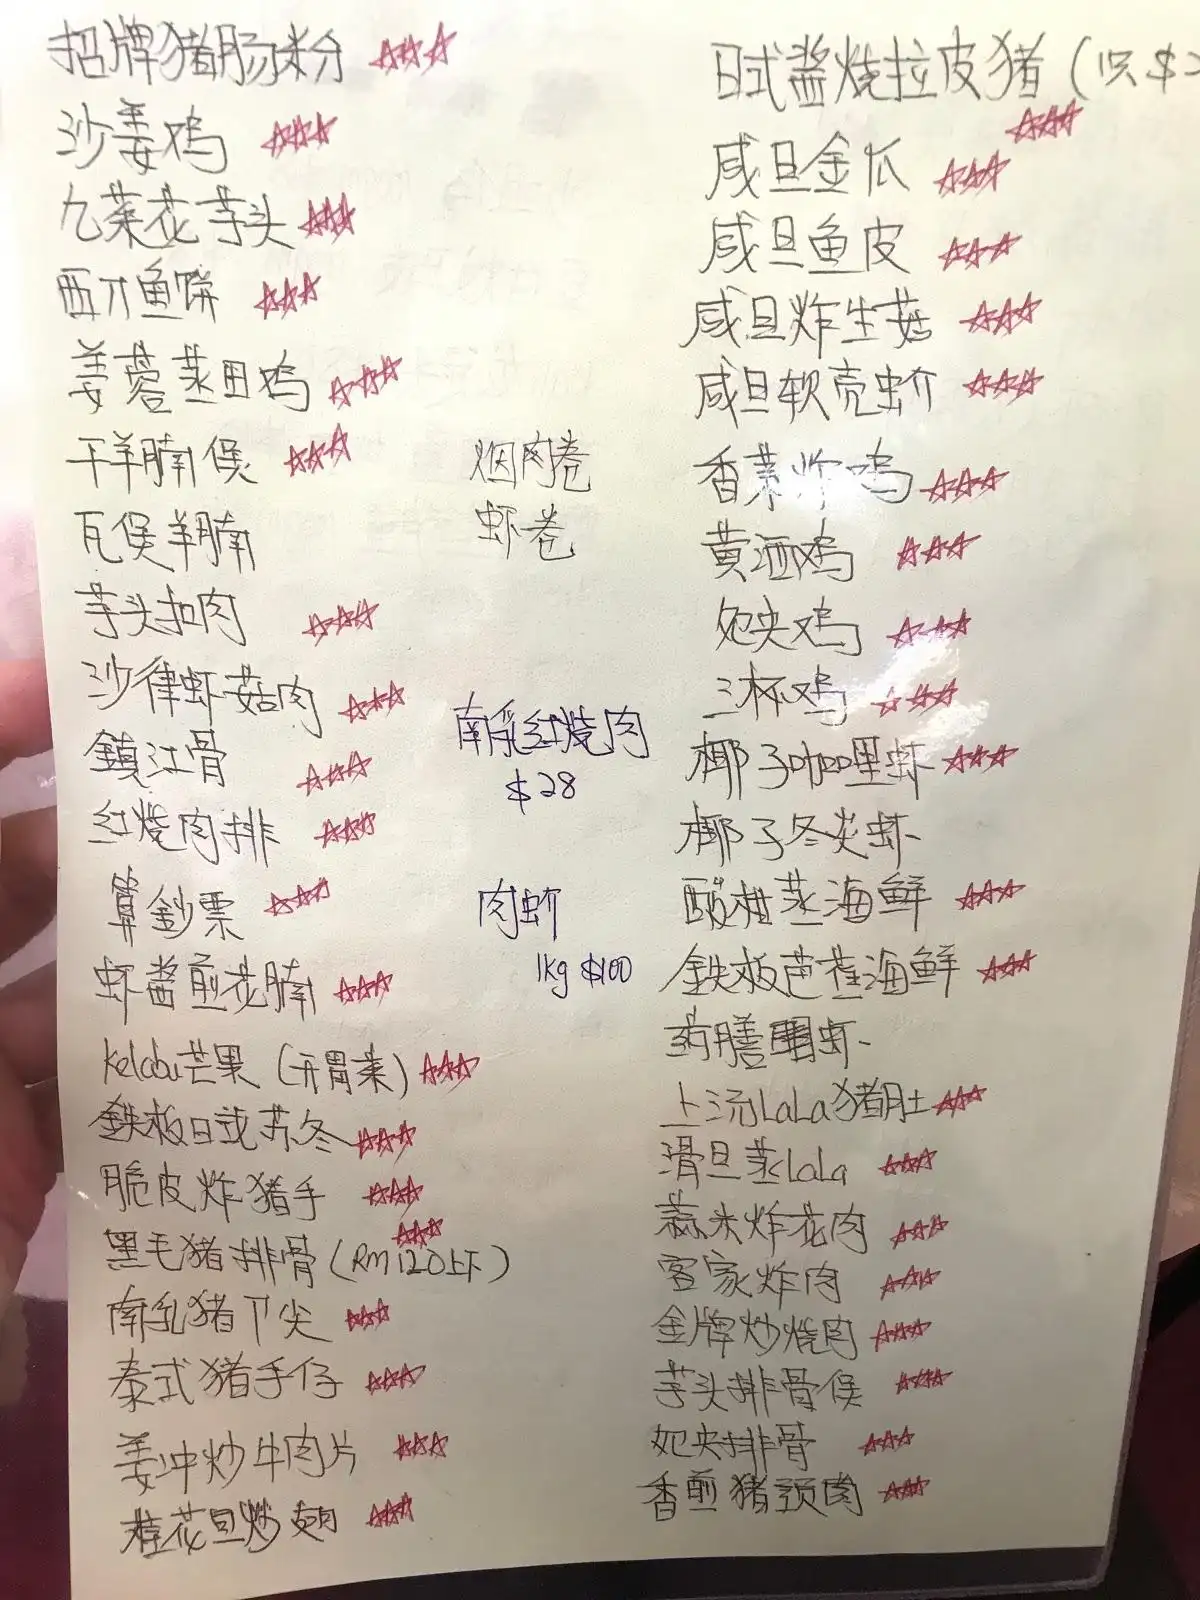 招牌猪肠粉
沙姜鸡
九菜花芋头
西刀鱼饼
姜蓉蒸田鸡
干羊腩煲
瓦煲羊腩
芋头扣肉
沙律虾菇肉
鎮江骨
红烧肉排
算鈔票
虾酱煎花腩
Kelabu芒果 (开胃菜)
鉄板日式苏冬
脆皮炸猪手
黑毛猪排骨 (RM120上下)
南乳猪下尖
泰式猪手仔
姜冲炒牛肉片
桂花旦炒翅
烟肉卷
虾卷
南乳红烧肉
$28
肉蚧
1kg $100
日式酱烧拉皮猪 (1只 $
咸旦金瓜
咸旦鱼皮
咸旦炸生菇
咸旦软壳虫介
香菜炸鸡
黄酒鸡
妃央鸡
三杯鸡
椰子咖哩虾
椰子冬炎虾
酸柑蒸海鲜
鉄板芭蕉海鲜
药膳虾
上汤LaLa猪肚
滑旦蒸LaLa
蒜米炸花肉
客家炸肉
金牌炒烧肉
芋头排骨煲
妃央排骨
香煎猪颈肉